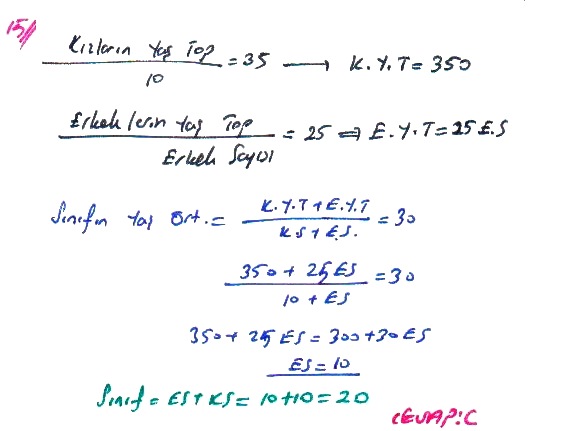 15//
Kızların Yaş Top / 10 = 35 → K.Y.T = 350
Erkeklerin Yaş Top / Erkek Sayısı = 25 ⇒ E.Y.T = 25 E.S
Sınıfın Yaş Ort. = K.Y.T + E.Y.T / KS + E.S. = 30
350 + 25 ES / 10 + ES = 30
350 + 25 ES = 300 + 30 ES
ES = 10
Sınıf = ES + KS = 10 + 10 = 20
CEVAP: C